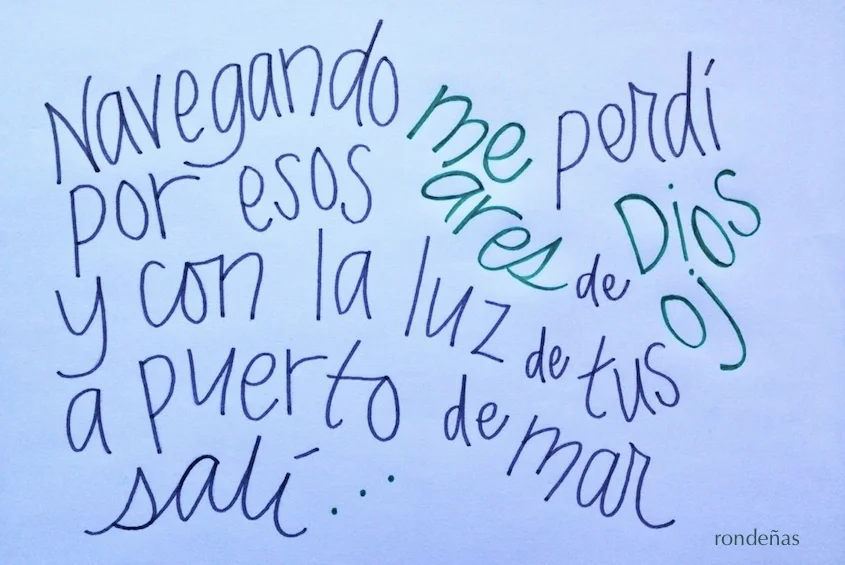 Navegando me perdí
por esos ares de Dios
y con la luz de tus oj
a puerto de mar
salí...
rondeñas